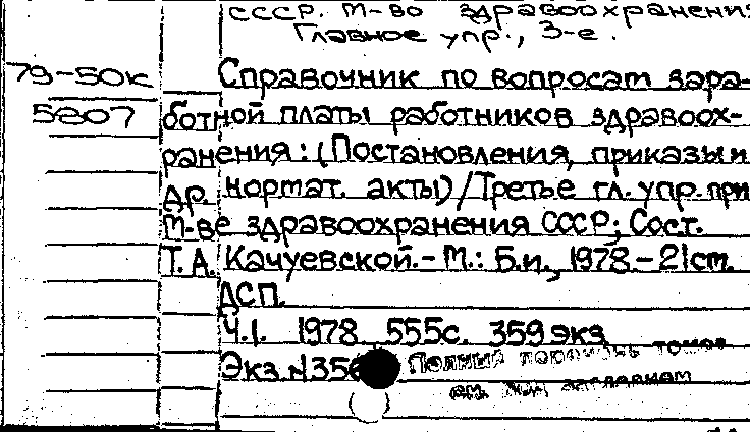 СССР. М-во здравоохранения
Главное упр., 3-е.
79-50к Справочник по вопросам зара-
5807 ботной платы работников здравоох-
ранения: (Постановления, приказы и
др. нормат. акты) / Третье гл. упр. при
М-ве здравоохранения СССР; Сост.
Т. А. Качуевской. - М.: Б.и., 1978 - 21 см.
ДСП.
Ч.1. 1978. 555с. 359 экз.
Экз. N356
Полный перечень томов
см. под заглавием